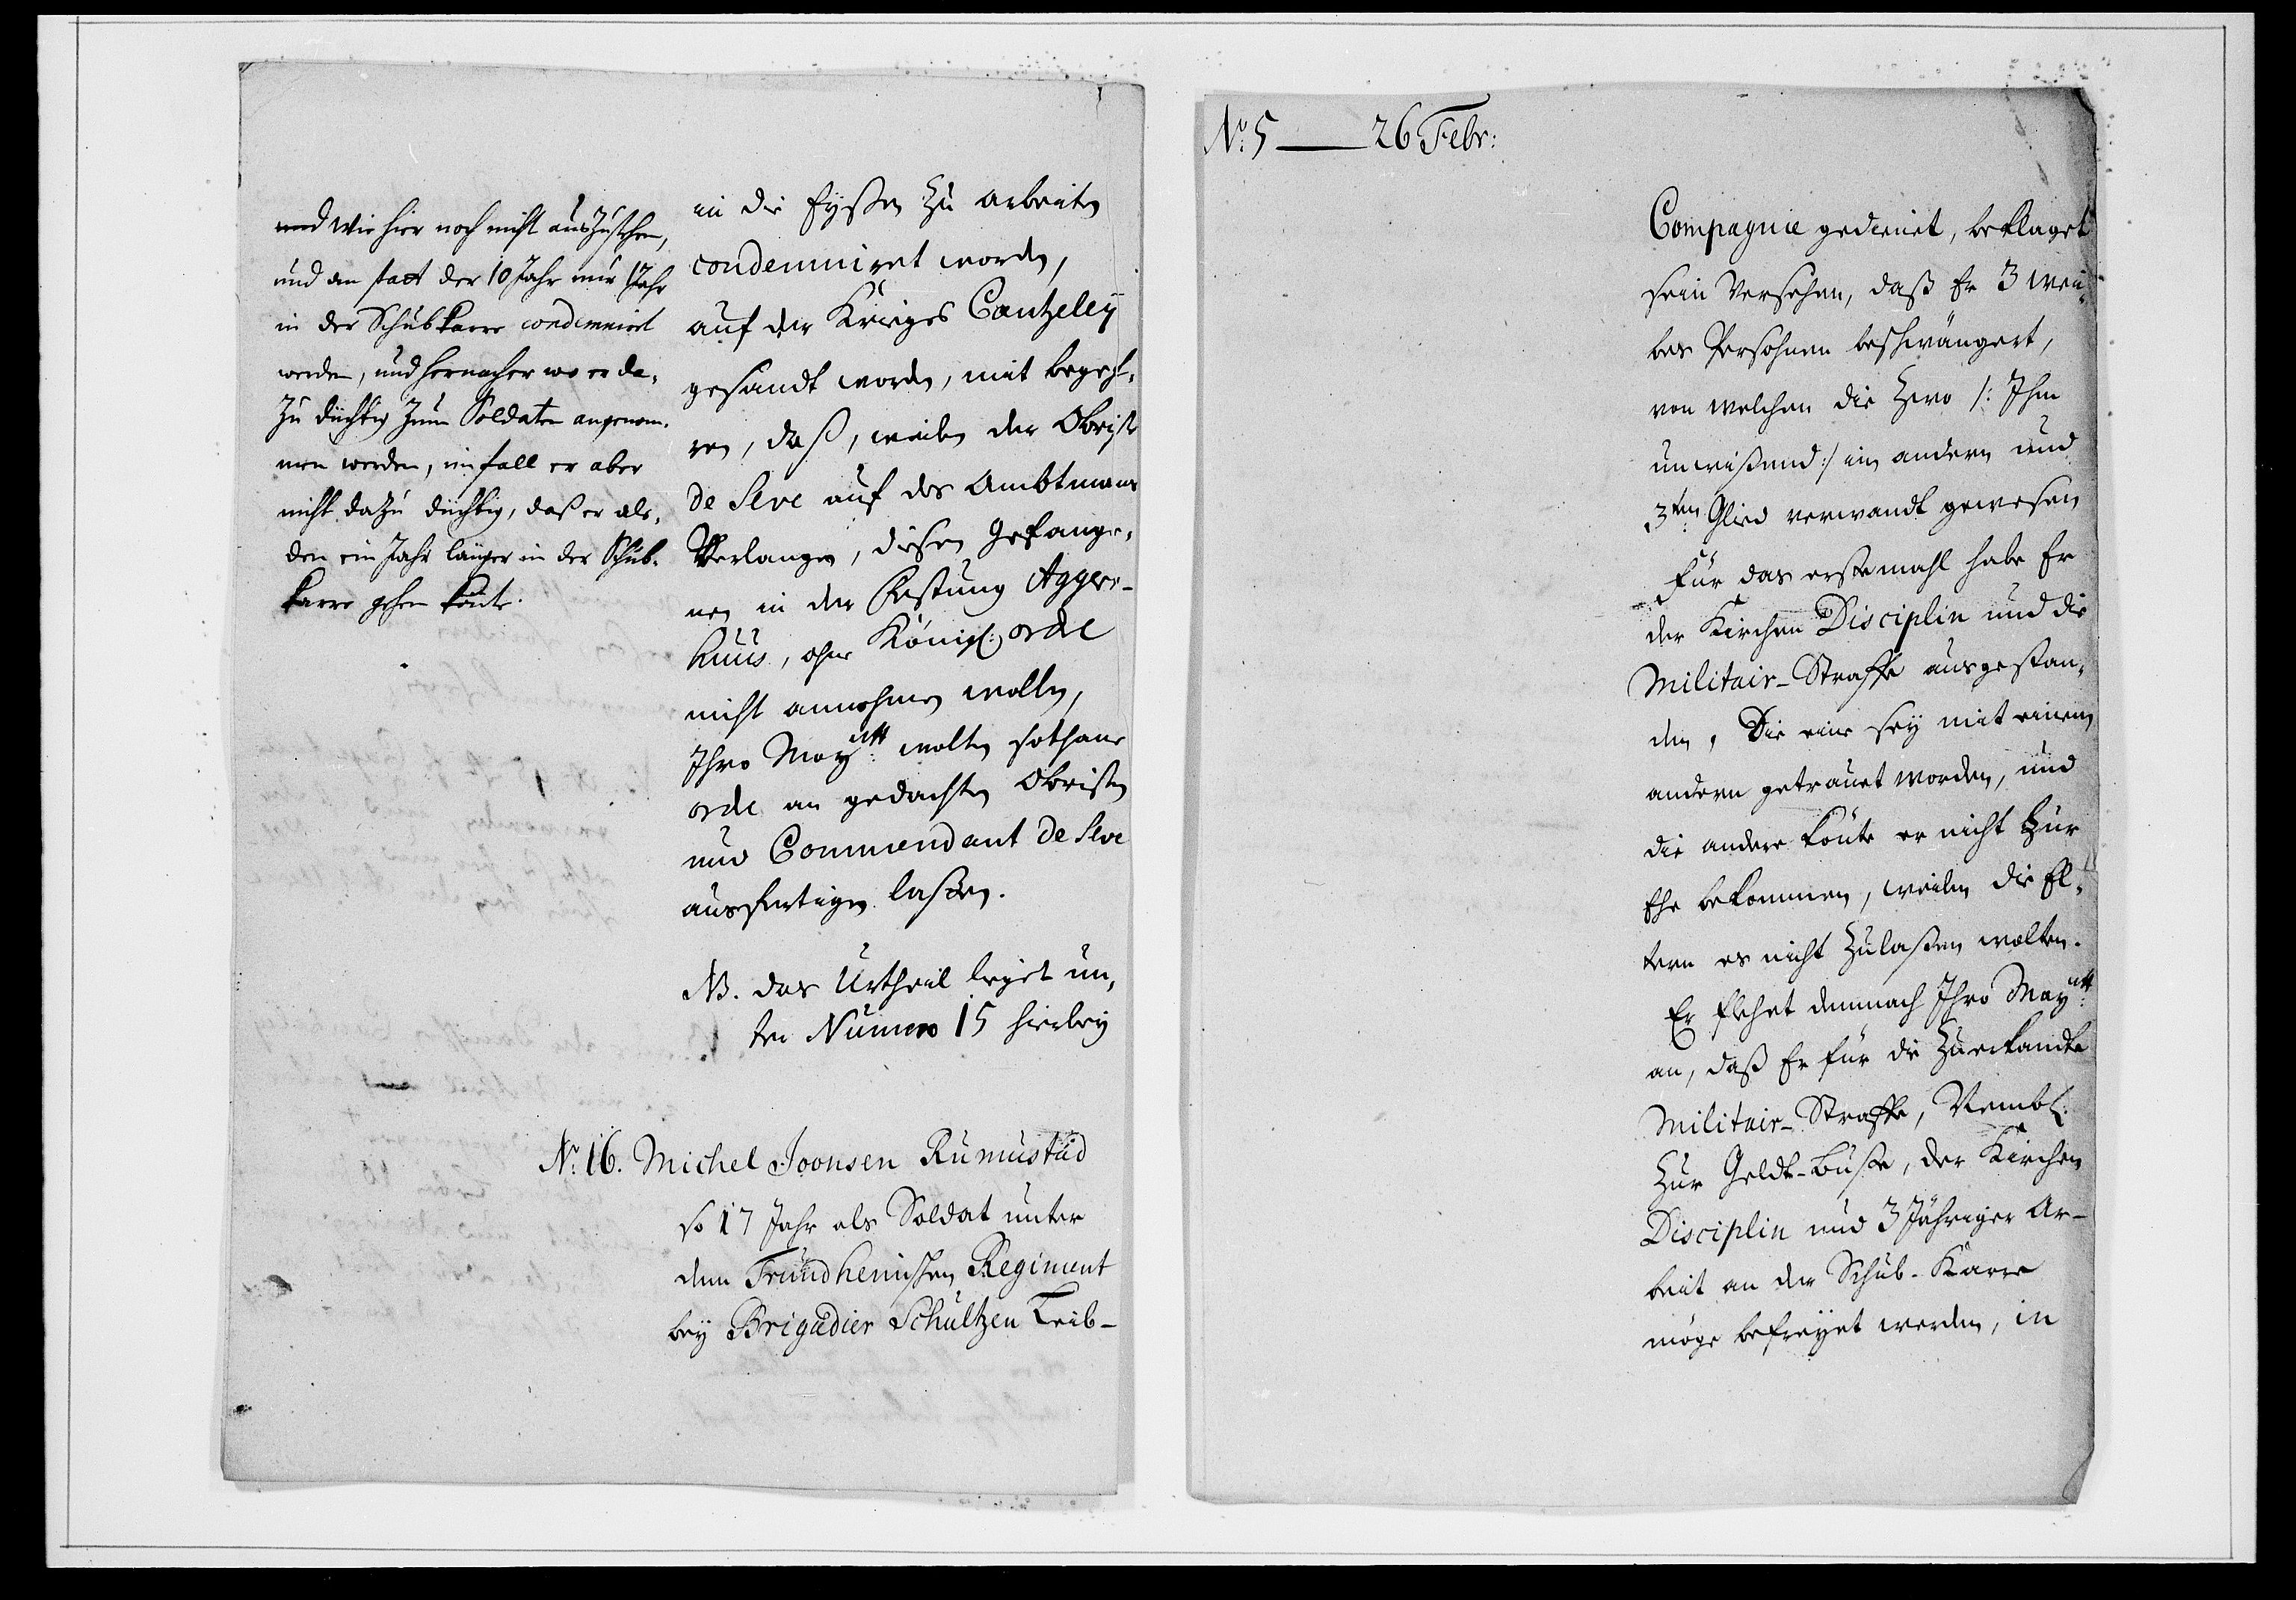 und wie hier noch nicht auszustehen,
und an statt der 10 Jahr nur 1 Jahr
in der Schubkarre condemniret
werden, und hernacher wo er da¬
zu düchtig zum Soldaten angenom¬
men werden, im fall er aber
nicht dazu düchtig, daß er als¬
den ein Jahr länger in der Schub¬
karre gehen könte.
in die Eyßen zu arbeiten
condemniret worden,
auf der Krieges Cantzeley
gesandt worden, mit begeh¬
ren, daß, weilen der Obrist
de Seve auf des Ambtmans
Verlangen, diesen Gefange¬
nen in der Festung Agger¬
huus, ohne Königl: ordre
nicht annehmen wollen,
Ihro Mayttt: wolten sothane
ordre an gedachten Obristen
und Commendant de Seve
ausfertigen laßen.
NB. das Urtheil lieget un¬
ter Numero 15 hierbey
No: 16. Michel Joonsen Rumustad
so 17 Jahr als Soldat unter
dem Trundheimschen Regiment
bey Brigadier Schultzen Leib-
No: 5 — 26 Febr:
Compagnie gedienet, beklaget
sein Versehen, daß Er 3 wei¬
bes Persohnen beschwängert,
von welchen die Zwo /: Ihm
unwißend :/ im andern und
3ten Glied verwandt gewesen
Für das erstemahl habe Er
der Kirchen Disciplin und die
Militair-Straffe ausgestan¬
den, Die eine sey mit einem
andern getrauet worden, und
die andere könte er nicht zur
Ehe bekommen, weilen die El¬
tern es nicht zulaßen wolten.
Er flehet demnach Ihro Mayttt:
an, daß Er für die zuerkandte
Militair-Straffe, Nembl:
zur Geldt-Buße, der Kirchen
Disciplin und 3 Jähriger Ar-
beit an der Schub-Karre
möge befreyet werden, in